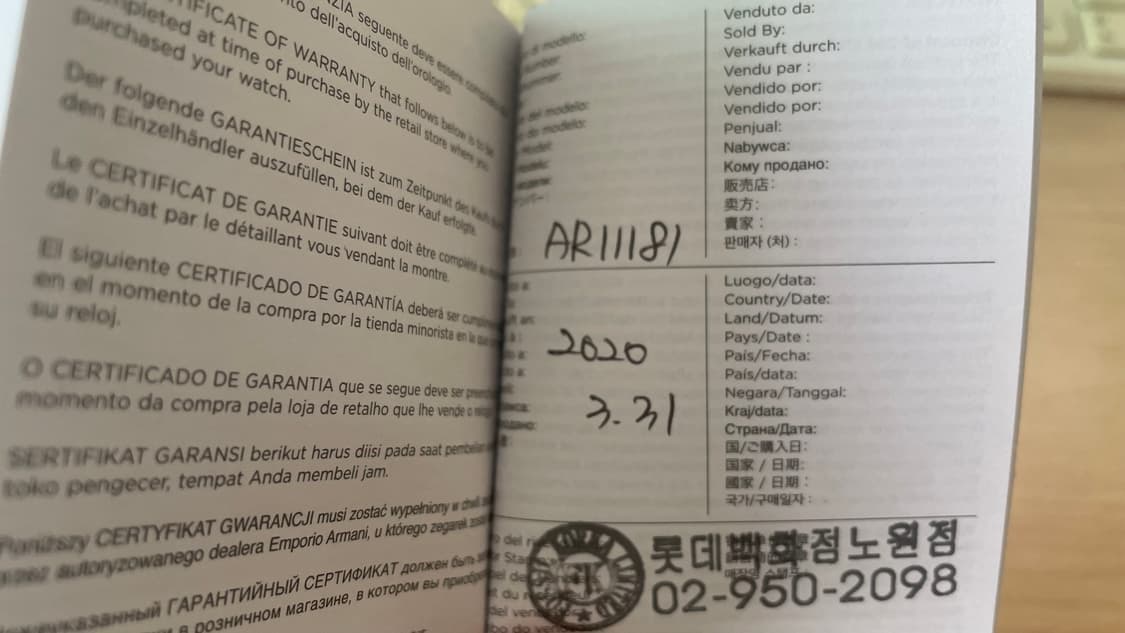 seguente deve essere
dell'acquisto dell'orologio.
CERTIFICATE OF WARRANTY that follows below is to be
completed at time of purchase by the retail store where you
purchased your watch.
Der folgende GARANTIESCHEIN ist zum Zeitpunkt des Kaufs
den Einzelhändler auszufüllen, bei dem der Kauf erfolgte.
Le CERTIFICAT DE GARANTIE suivant doit être complété au
de l'achat par le détaillant vous vendant la montre.
El siguiente CERTIFICADO DE GARANTÍA deberá ser
en el momento de la compra por la tienda minorista en la
su reloj.
O CERTIFICADO DE GARANTIA que se segue deve ser
momento da compra pela loja de retalho que lhe vende o
SERTIFIKAT GARANSI berikut harus diisi pada saat
toko pengecer, tempat Anda membeli jam.
CERTYFIKAT GWARANCJI musi zostać wypełniony w
autoryzowanego dealera Emporio Armani, u którego zegarek
ГАРАНТИЙНЫЙ СЕРТИФИКАТ должен быть
в розничном магазине, в котором вы
AR11181
2020
3.31
Venduto da:
Sold By:
Verkauft durch:
Vendu par :
Vendido por:
Vendido por:
Penjual:
Nabywca:
Кому продано:
販売店:
卖方:
賣家:
판매자 (처) :
Luogo/data:
Country/Date:
Land/Datum:
Pays/Date :
País/Fecha:
País/data:
Negara/Tanggal:
Kraj/data:
Страна/Дата:
国/ご購入日:
国家 / 日期:
國家 / 日期 :
국가/구매일자 :
롯데백화점노원점
02-950-2098